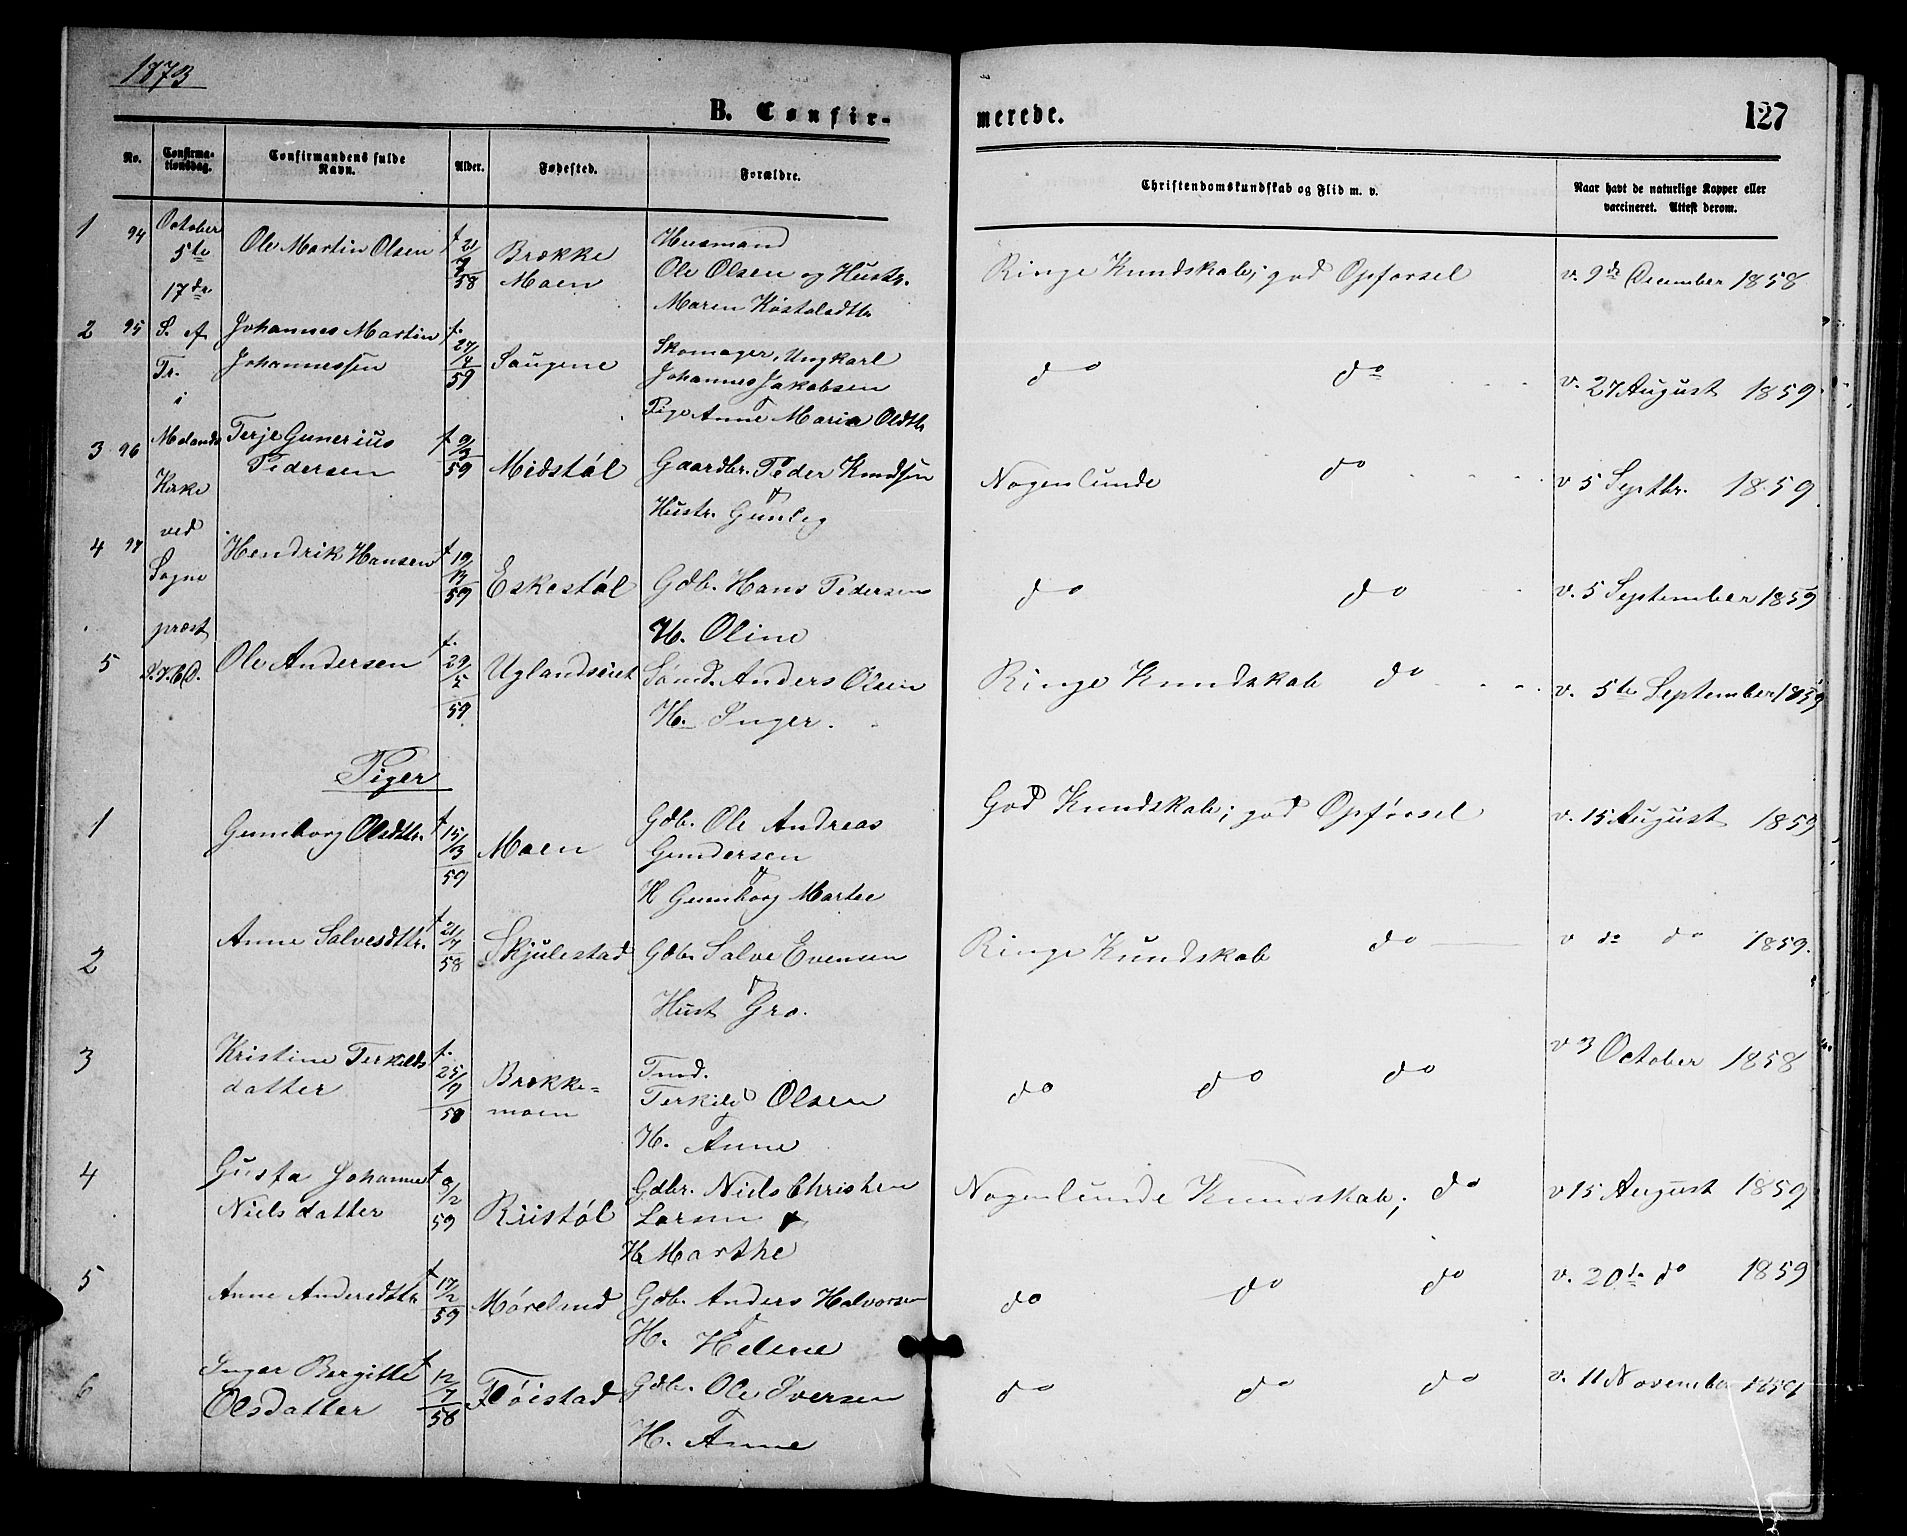 1873
B. Confir-
merede.
127
No.
Confirma-
tionsdag.
Confirmandens fulde
Navn.
Alder.
Fødested.
Forældre.
Christendomskundskab og Flid m. v.
Naar havt de naturlige Kopper eller
vaccineret. Attest derom.
October
5te
17de
S. af
Tr.
i
Molands
Kirke
ved
Sogne
præst
1 94 Ole Martin Olsen f. 21/9 58 Brække
Moen
Husmand
Ole Olsen og Hustr.
Maren
Ringe Kundskab; god Opførsel
v. 9de December 1858
2 95 Johannes Martin
Johannessen
f. 27/4 59 Saugene
Skomager, Ungkarl
Johannes Jakobsen
Pige Anne Maria Olsdtr
do do
v. 27 August 1859
3 96 Terje Gunerius
Pedersen
f. 9/3 59 Midstøl
Gaardbr. Peder Knudsen
Hustr. Gunleg
Nogenlunde do
v 5 Septbr. 1859
4 97 Hendrik Hansen f. 59 Eskestøl
Gdb. Hans Pedersen
H. Oline
do do
v. 5 September 1859
5 Ole Andersen f. 29/5 59
Sømd. Anders Olsen
H. Inger.
Ringe Kundskab do
v. 5te September 1859
Piger
1 Gunborg Olsdtr. f. 15/3 59 Moen
Gdb. Ole Andreas
Gundersen
H Gunborg Marte
God Kundskab; god Opførsel
v. 15 August 1859
2 Anne Salvesdttr. f. 21/7 58 Skjulestad
Gdb. Salve Evensen
Hust Gro.
Ringe Kundskab do
v do do 1859.
3 Kristine Terkilds
datter
f. 25/9 58 Brække=
moen
Tmd.
Terkild Olsen
H. Anne
do do do
v 3 October 1858
4 Gusta Johanne
Nielsdatter
f. 9/2 59 Ristøl
Gdbr. Niels Christen
Larsen
H. Marthe
Nogenlunde Kundskab; do
v 15 August 1859
5 Anne Andersdttr f. 17/2 59 Møreland
Gdb. Anders Halvorsen
H. Helene
do do do
v. 20de do 1859
6 Inger Bergitte
Olsdatter
f. 12/7 58 Fløistad
Gdb. Ole Iversen
H. Anne
do do do
v. 11 November 1859